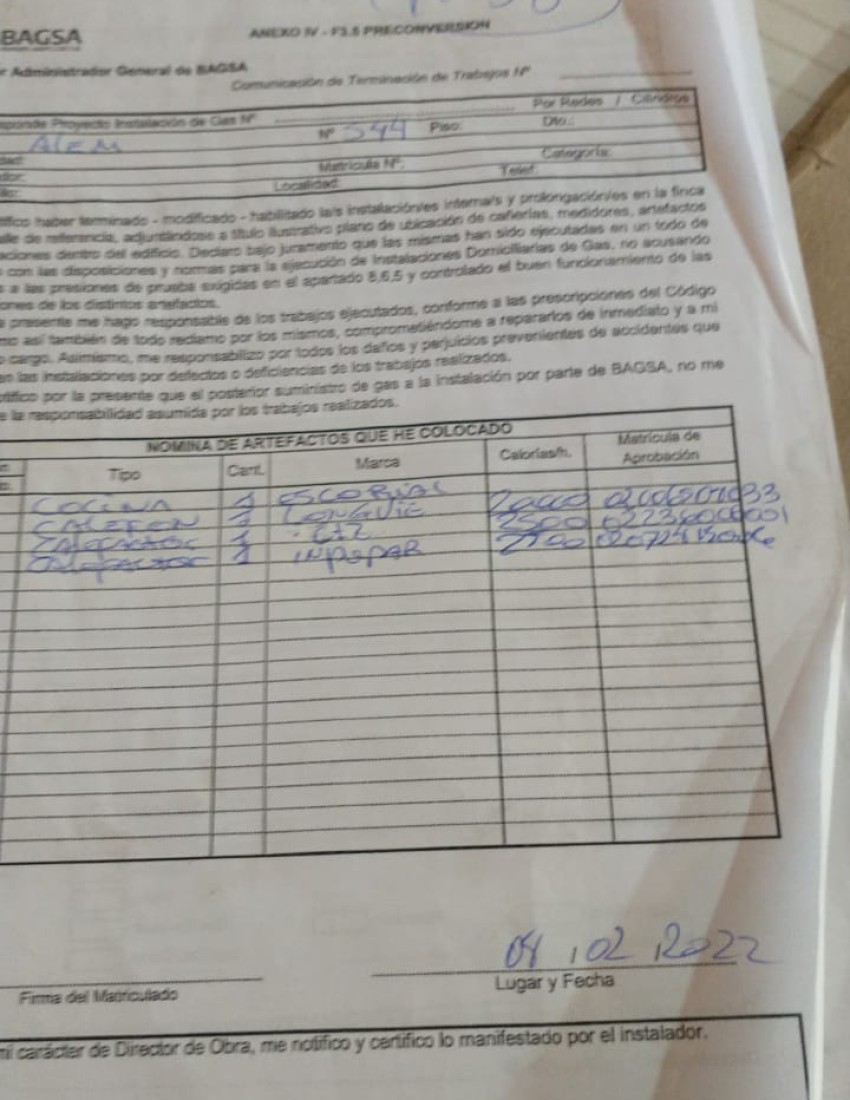 BAGSA
ANEXO IV - F3.5 PRECONVERSION
r Administrador General de BAGSA
Comunicación de Terminación de Trabajos Nº
Por Redes / Cilindros
sponde Proyecto Instalación de Gas Nº
ALEM Nº 544 Piso: Dto.:
dad: Categoría:
dor: Matrícula Nº: Telef:
Localidad:
ifico haber terminado - modificado - habilitado la/s instalación/es interna/s y prolongación/es en la finca
alle de referencia, adjuntándose a título ilustrativo plano de ubicación de cañerías, medidores, artefactos
aciones dentro del edificio. Declaro bajo juramento que las mismas han sido ejecutadas en un todo de
con las disposiciones y normas para la ejecución de Instalaciones Domiciliarias de Gas, no acusando
s a las presiones de prueba exigidas en el apartado 8,6,5 y controlado el buen funcionamiento de las
ones de los distintos artefactos.
a presente me hago responsable de los trabajos ejecutados, conforme a las prescripciones del Código
mo así también de todo reclamo por los mismos, comprometiéndome a repararlos de inmediato y a mi
o cargo. Asimismo, me responsabilizo por todos los daños y perjuicios prevenientes de accidentes que
en las instalaciones por defectos o deficiencias de los trabajos realizados.
otifico por la presente que el posterior suministro de gas a la instalación por parte de BAGSA, no me
e la responsabilidad asumida por los trabajos realizados.
NOMINA DE ARTEFACTOS QUE HE COLOCADO
Tipo Cant. Marca Calorías/h. Matrícula de Aprobación
COCINA 1 ESCORIAL
CALEFON 1 LONGVIE
CALEFACTOR 1 CTZ 2500
CALEFACTOR 1 INPOPAR
04,02,2022
Firma del Matriculado
Lugar y Fecha
mi carácter de Director de Obra, me notifico y certifico lo manifestado por el instalador.